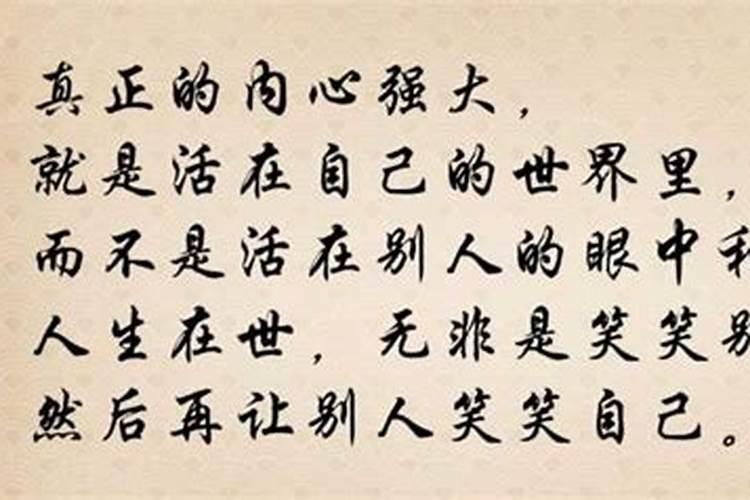 真正的内心强大，
就是活在自己的世界里，
而不是活在别人的眼中
人生在世，无非是笑笑
然后再让别人笑笑自己。